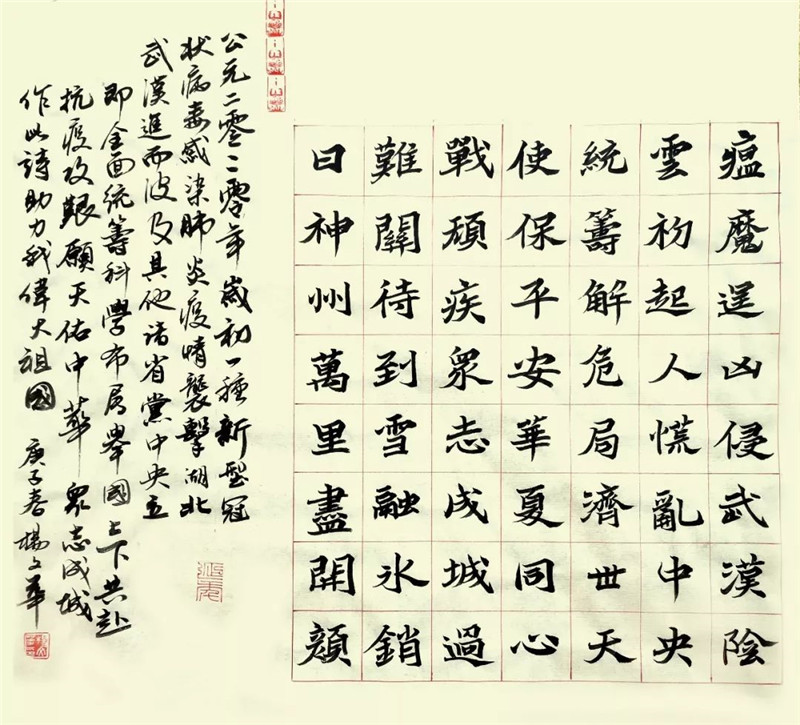 瘟魔逞凶侵武漢陰
雲初起人慌亂中央
統籌解危局濟世天
使保平安華夏同心
戰頑疾衆志成城過
難關待到雪融冰銷
日神州萬里盡開顏
公元二零二零年歲初一種新型冠
狀病毒感染肺炎疫情襲擊湖北
武漢進而波及其他諸省黨中央立
即全面統籌科學布局舉國上下共赴
抗疫攻艱願天佑中華衆志成城
作此詩助力我偉大祖國
庚子春楊文華